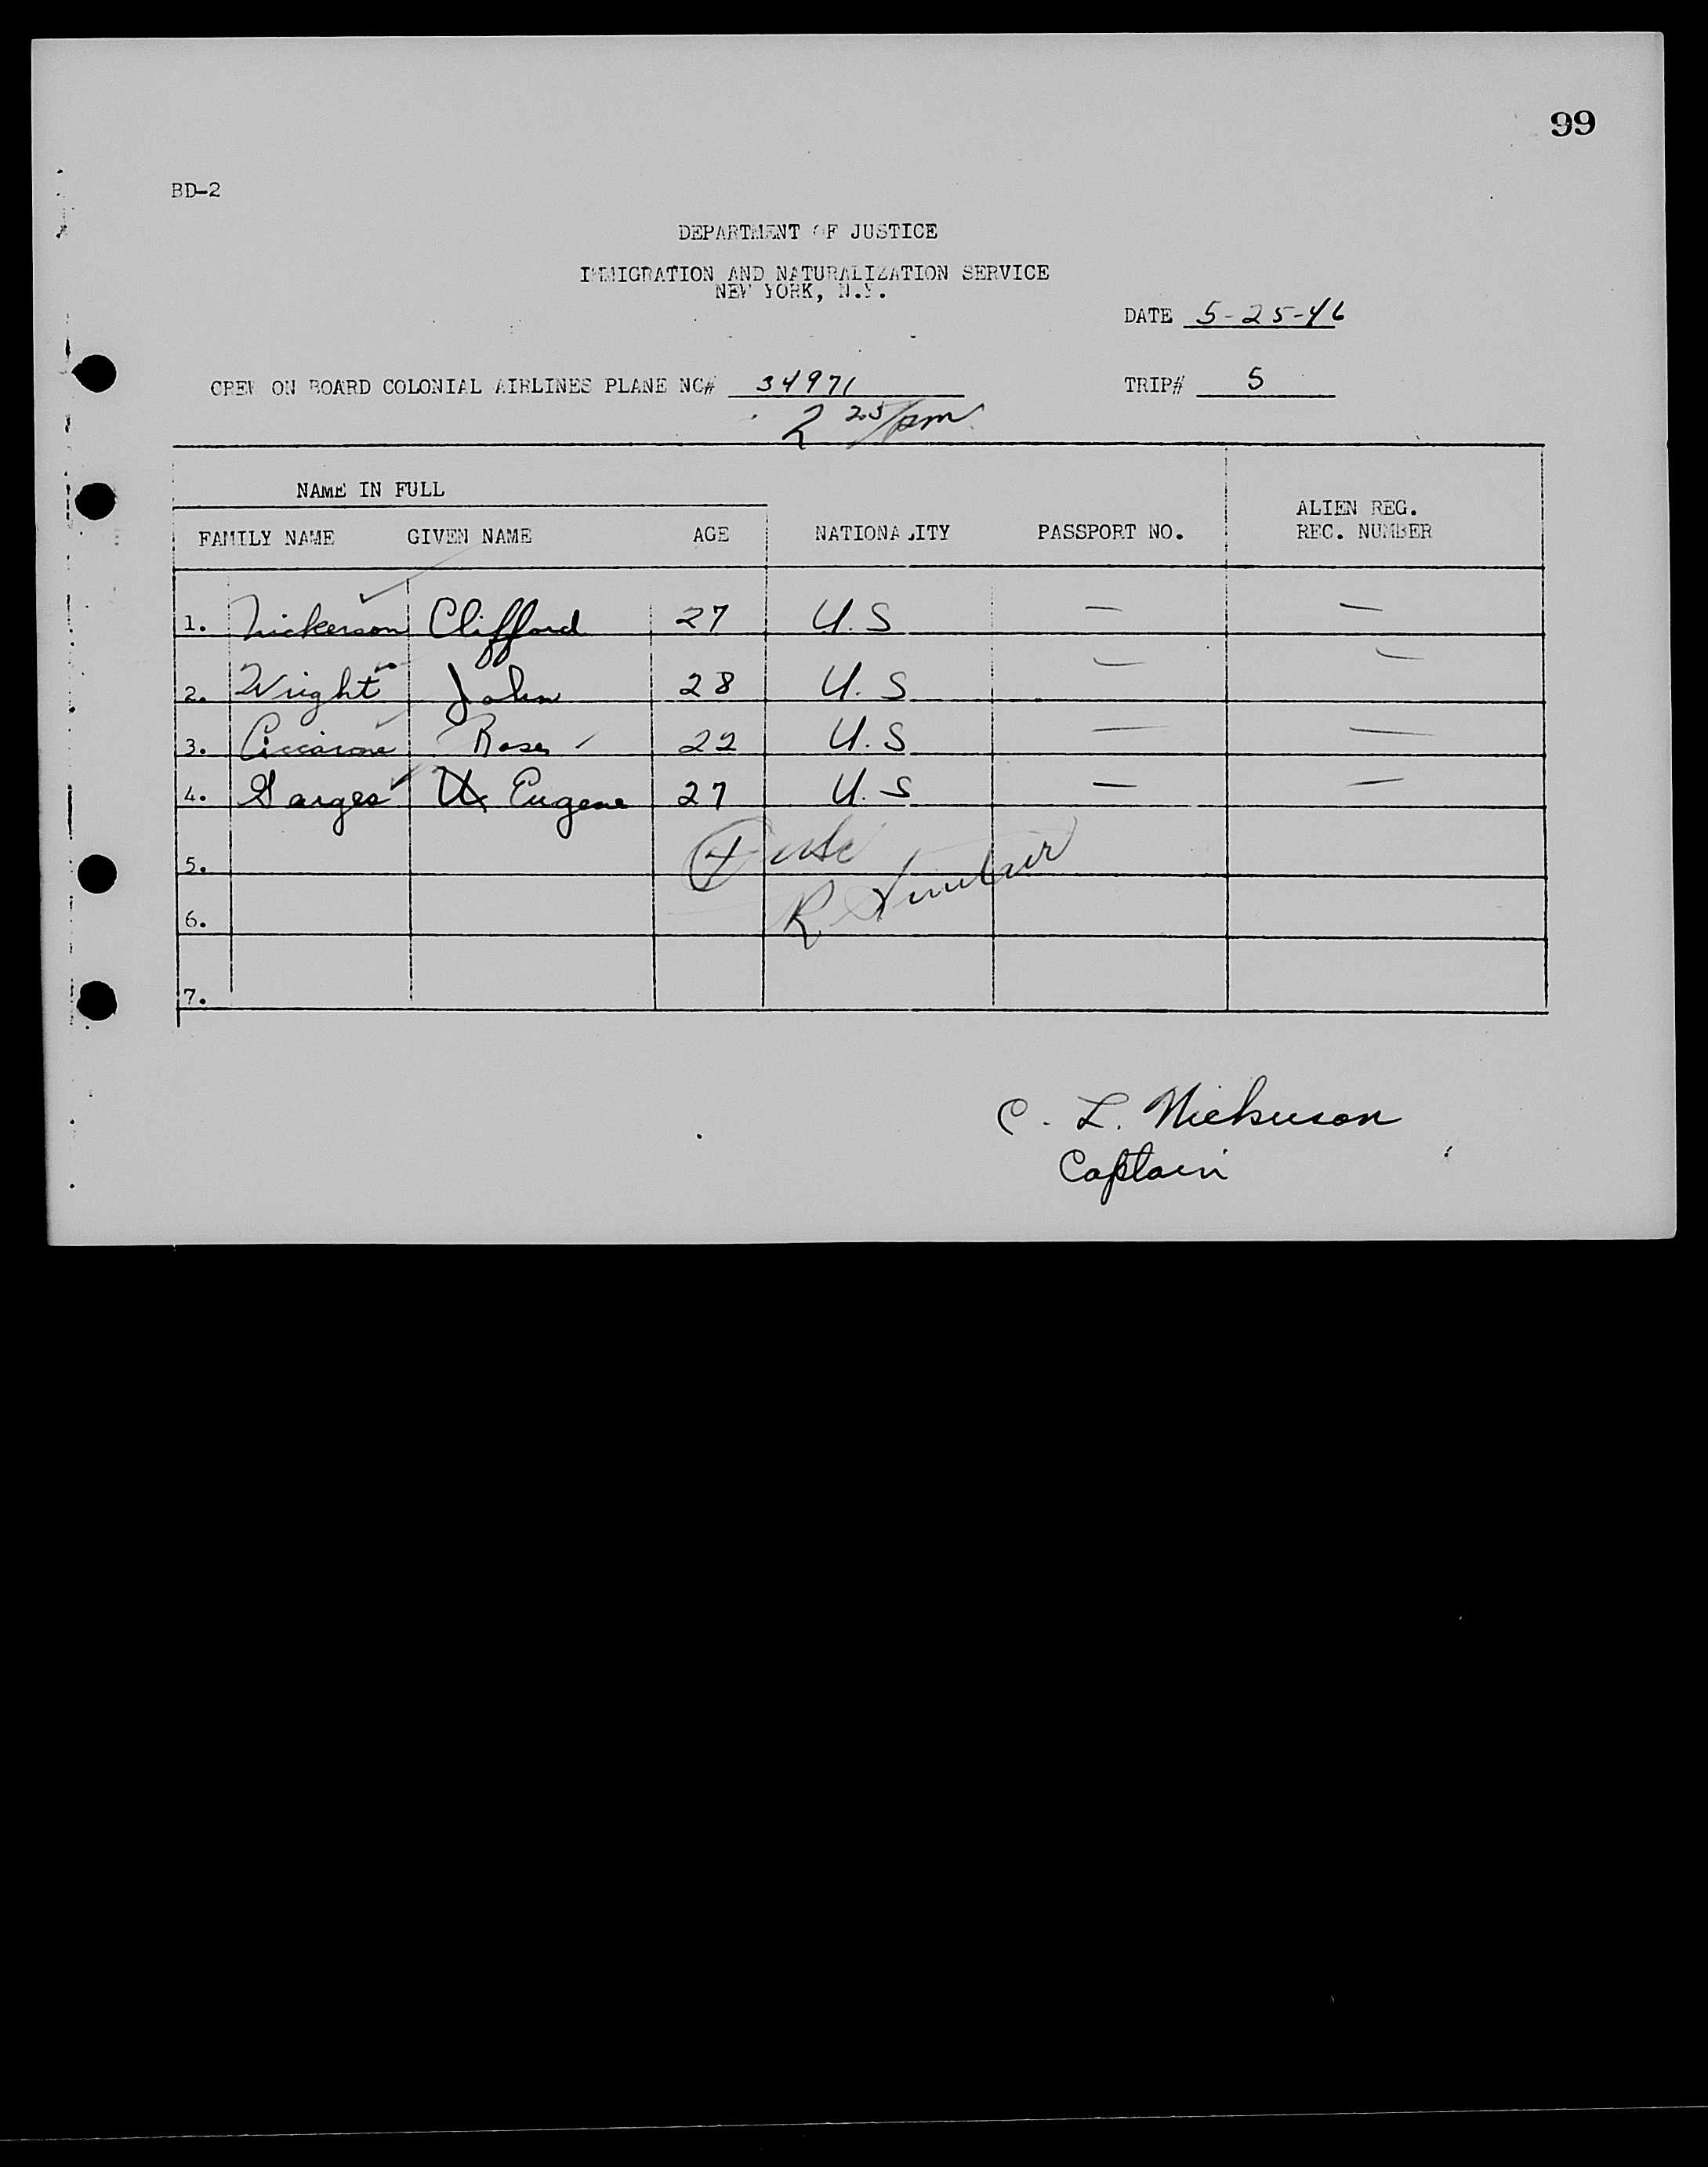 99
BD-2
DEPARTMENT OF JUSTICE
IMMIGRATION AND NATURALIZATION SERVICE
NEW YORK, N.Y.
DATE 5-25-46
CREW ON BOARD COLONIAL AIRLINES PLANE NC# 34971 TRIP# 5
2 25/pm
NAME IN FULL
FAMILY NAME GIVEN NAME AGE NATIONALITY PASSPORT NO. ALIEN REG. REC. NUMBER
1. Nickerson Clifford 27 U.S — —
2. Wright John 28 U.S — —
3. Ciccarone Rose 22 U.S — —
4. Garges Eugene 27 U.S — —
5.
6. R Sinclair
7.
C. L. Nickerson
Captain